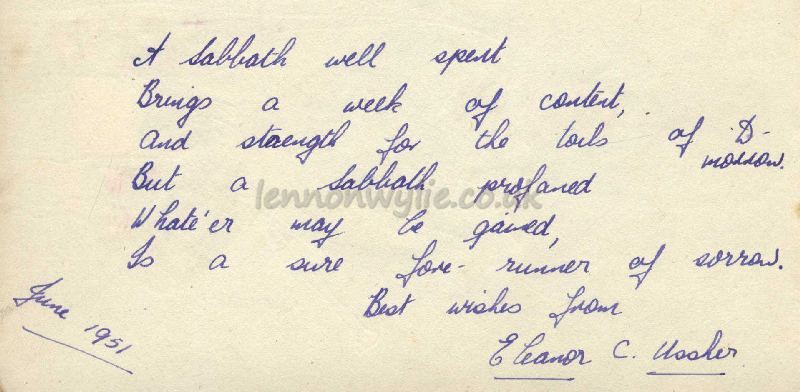 A Sabbath well spent
Brings a week of content,
And strength for the toils of To-
morrow.
But a Sabbath profaned
lennonwylie.co.uk
Whate'er may be gained,
Is a sure fore-runner of sorrow.
Best wishes from
June 1951
Eleanor C. Ussher